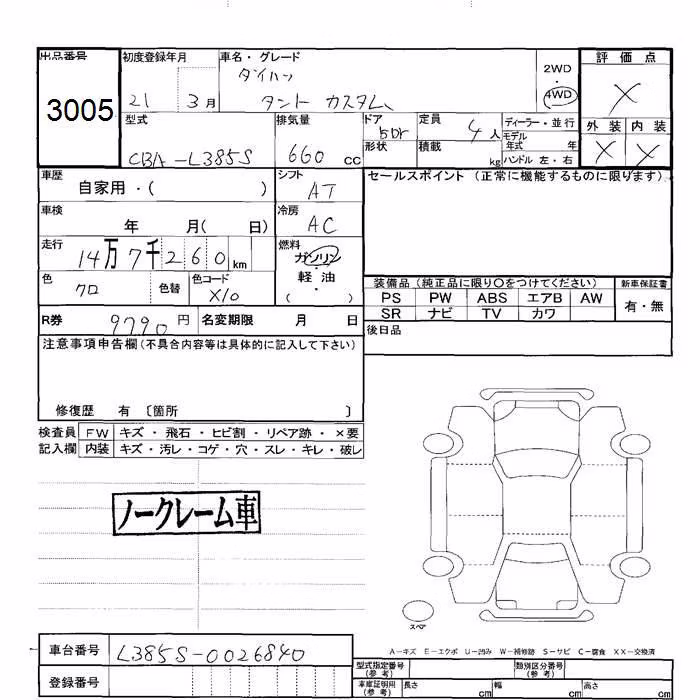 出品番号
3005
初度登録年月
21 3月
車名・グレード
ダイハツ
タント カスタム
2WD
・
4WD
評価点
X
外装 内装
X X
型式
CBA-L385S
排気量
660 cc
ドア
5Dr
形状
定員
4人
積載
kg
ディーラー・並行
モデル
年式 年
ハンドル 左・右
車歴
自家用・( )
シフト
AT
車検
年 月( 日)
冷房
AC
走行
14万7千260km
燃料
ガソリン
・
軽油
( )
色
クロ
色替
色コード
X10
R券
9790円
名変期限 月 日
セールスポイント (正常に機能するものに限ります)
装備品 (純正品に限り〇をつけてください)
PS PW ABS エアB AW
SR ナビ TV カワ
新車保証書
有・無
後日品
注意事項申告欄(不具合内容等は具体的に記入して下さい)
修復歴 有 〔箇所 〕
検査員
記入欄
FW キズ・飛石・ヒビ割・リペア跡・×要
内装 キズ・汚レ・コゲ・穴・スレ・キレ・破レ
ノークレーム車
スペア
A-キズ E-エクボ U-凹み W-補修跡 S-サビ C-腐食 XX-交換済
車台番号
L385S-0026840
登録番号
型式指定番号
(参考)
類別区分番号
(参考)
車庫証明用
(参考)
長さ cm
幅 cm
高さ cm